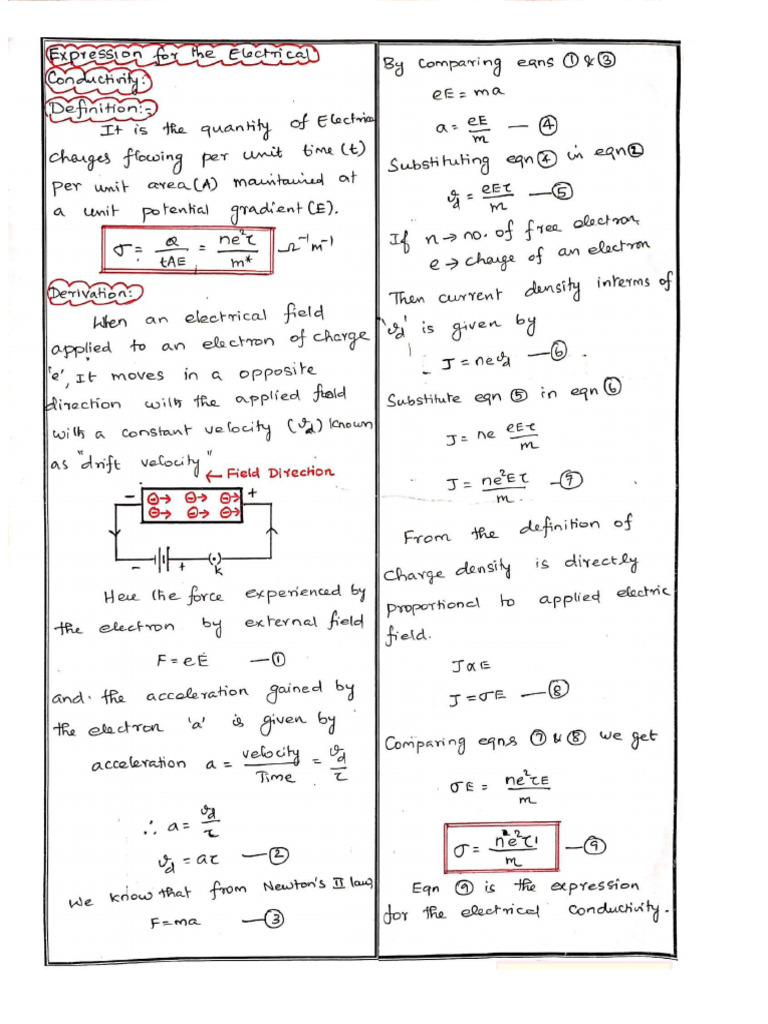 Expression for the Electrical
Conductivity:
Definition:-
It is the quantity of Electrical
charges flowing per unit time (t)
per unit area (A) maintained at
a unit potential gradient (E).
σ = Q/tAE = ne²τ/m* Ω⁻¹m⁻¹
Derivation:
When an electrical field
applied to an electron of charge
'e', It moves in a opposite
direction with the applied field
with a constant velocity (ϑd) known
as "drift velocity"
← Field Direction
- +
⊖→ ⊖→ ⊖→
⊖→ ⊖→ ⊖→
- + (•) K
Here the force experienced by
the electron by external field
F = eE — ①
and the acceleration gained by
the electron 'a' is given by
acceleration a = velocity/Time = ϑd/τ
∴ a = ϑd/τ
ϑd = aτ — ②
We know that from Newton's II law,
F = ma — ③
By comparing eqns ① & ③
eE = ma
a = eE/m — ④
Substituting eqn ④ in eqn ②
ϑd = eEτ/m — ⑤
If n → no. of free electron,
e → charge of an electron
Then current density interms of
'ϑd' is given by
J = neϑd — ⑥
Substitute eqn ⑤ in eqn ⑥
J = ne eEτ/m
J = ne²Eτ/m — ⑦
From the definition of
Charge density is directly
proportional to applied electric
field.
J ∝ E
J = σE — ⑧
Comparing eqns ⑦ & ⑧ we get
σE = ne²τE/m
σ = ne²τ/m — ⑨
Eqn ⑨ is the expression
for the electrical conductivity.